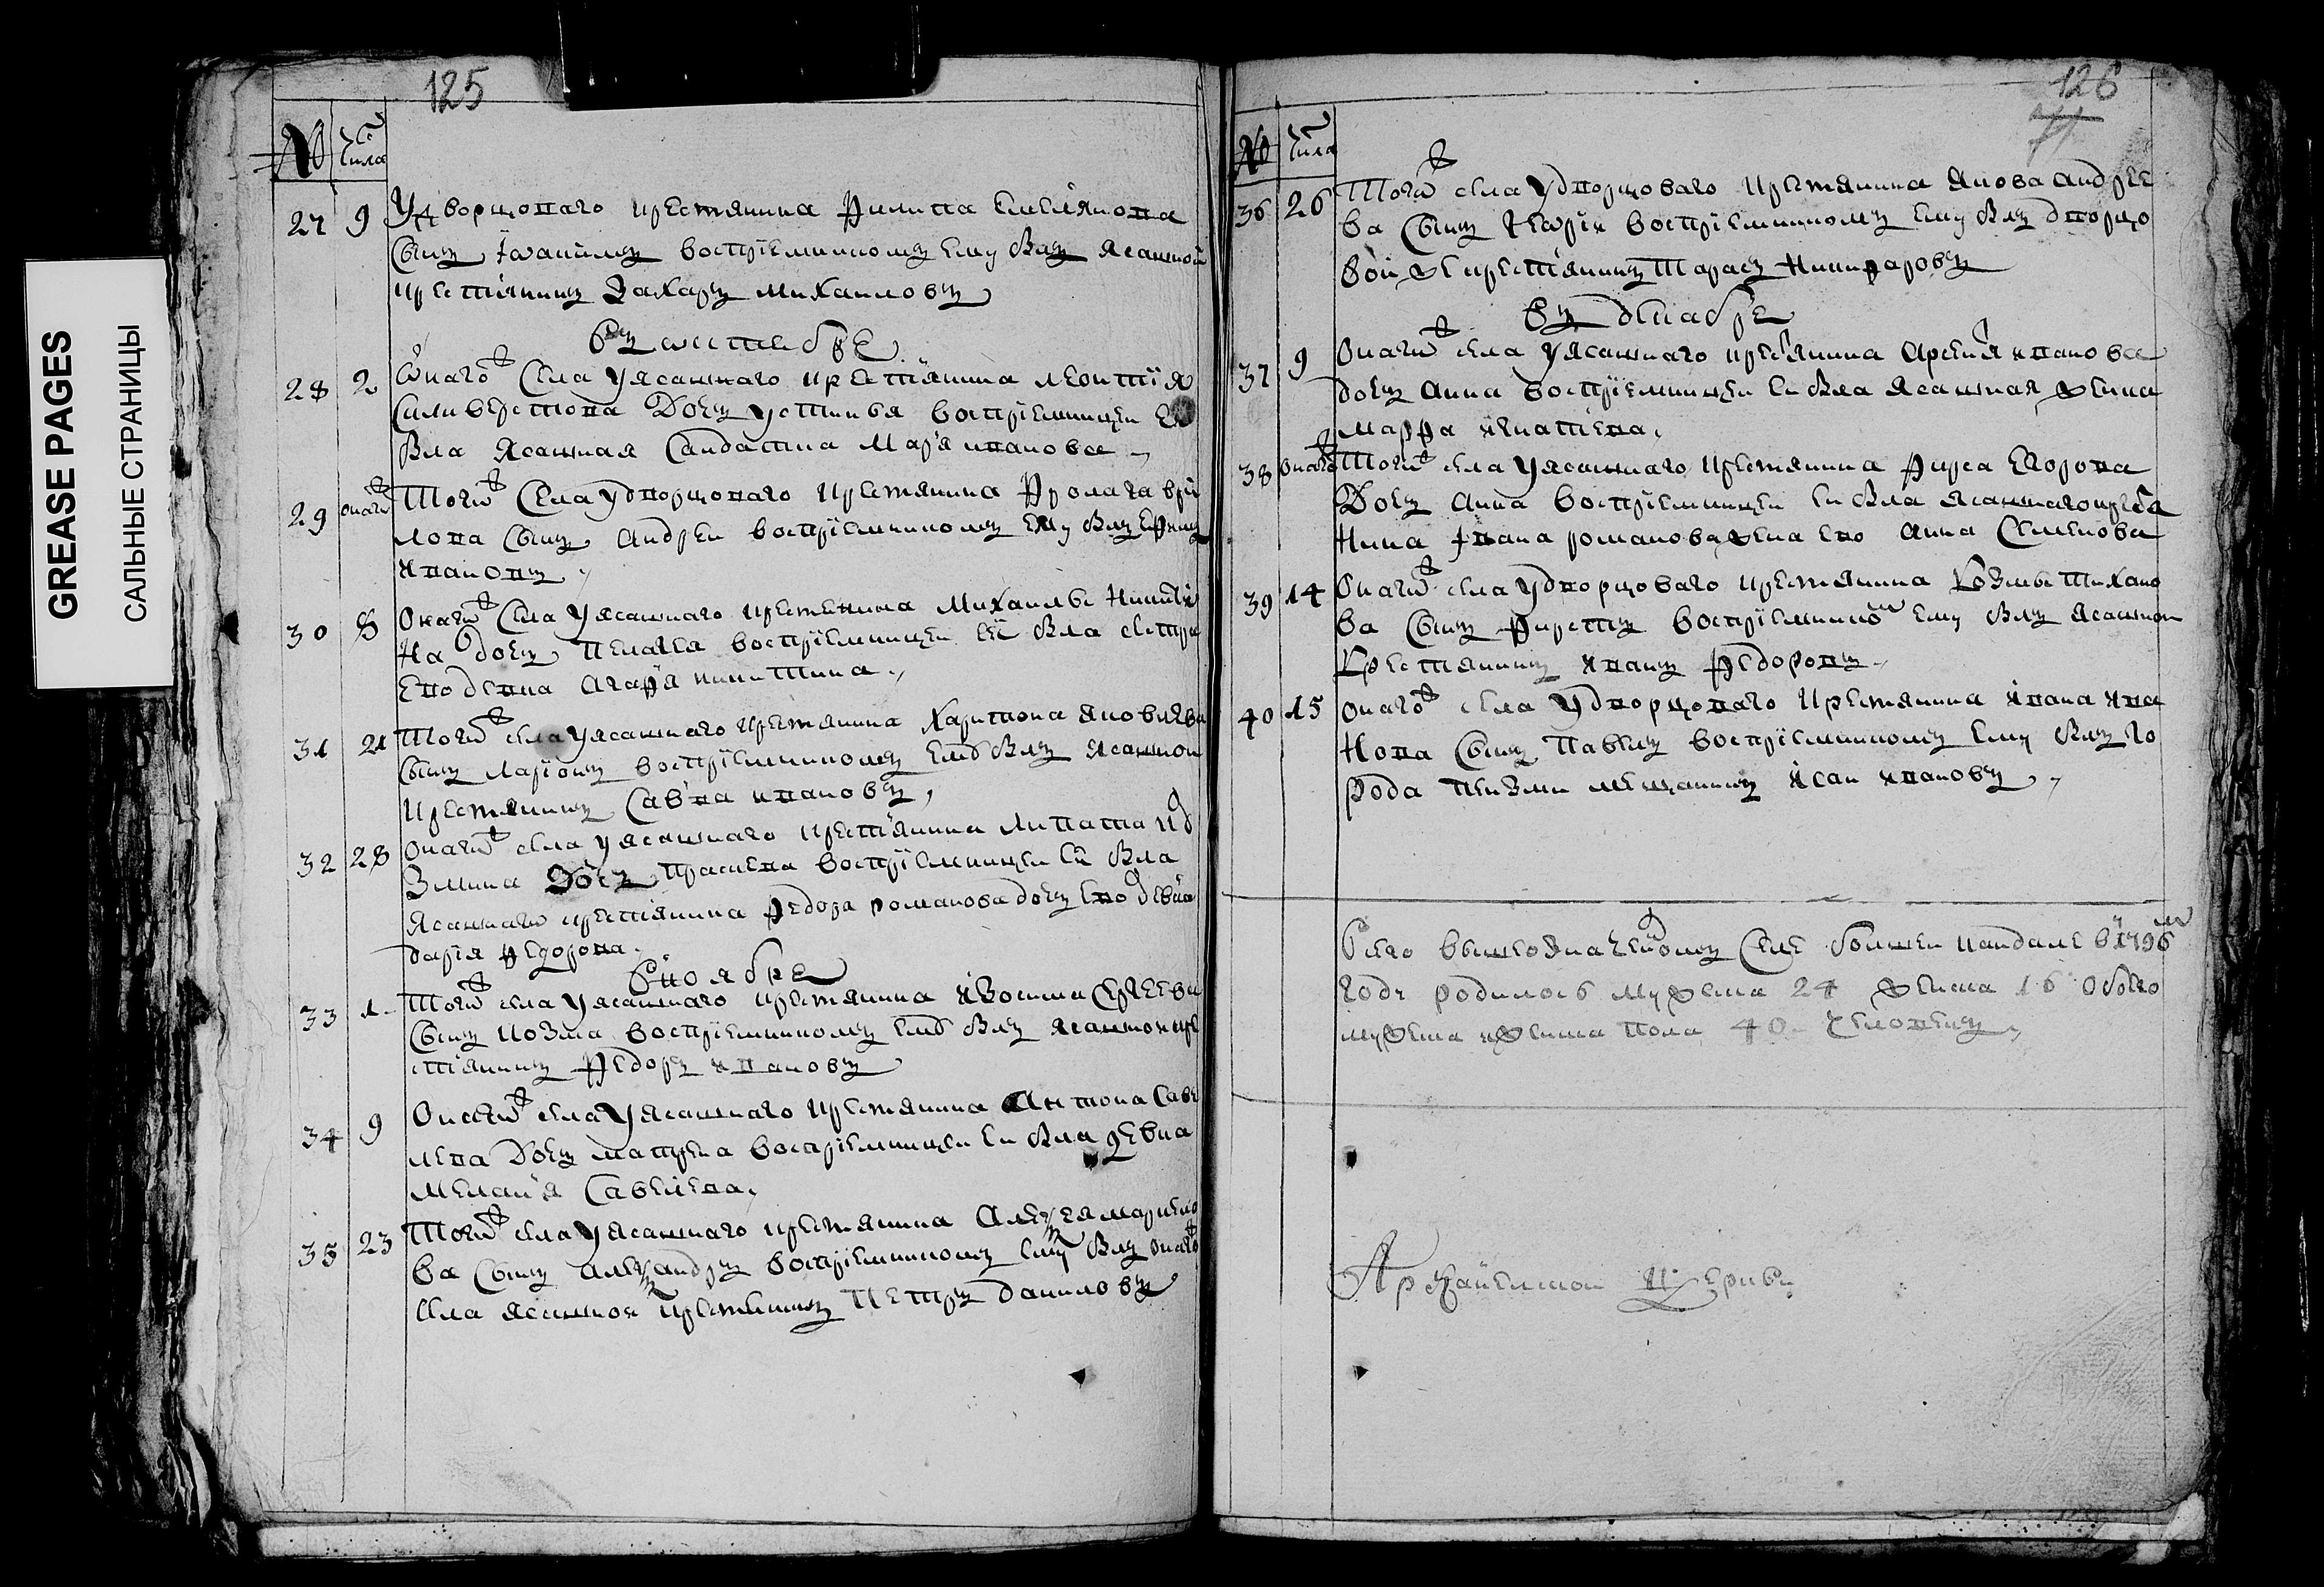 GREASE PAGES
САЛЬНЫЕ СТРАНИЦЫ
125
№ Числа
27 9 У дворцоваго крестьянина Филипа Емельянова
сынъ Іѡакимъ воспріемникомъ ему былъ ясашной
крестьянинъ Захаръ Михаиловъ
Въ ѡктебре
28 2 Ѡнагожъ села у ясашнаго крестьянина Леонтія
Саливерстова дочь Устинья воспріемницеи ей
была ясашная салдатка Марья Ивановае
29 онагожъ Тогожъ села у дворцоваго крестьянина Фрола Гаври
лова сынъ Андреи воспріемникомъ ему былъ
Ивановъ
30 8 Онагожъ села у ясашнаго крестьянина Михаилы Никити
на дочь Пелагея воспріемницеи ей была сестра
ево девка Агафя Никитина
31 21 Тогожъ села у ясашнаго крестьянина Харитона Яковлева
сынъ Ларіонъ воспріемникомъ емȣ былъ ясашнои
крестьянинъ Савва Ивановъ
32 28 Онагожъ села у ясашнаго крестьянина Липата Кȣ
змина дочь Прасковя воспріемницеи ей была
ясашнагѡ крестьянина Федора Романова дочь ево девка
Дарія Федорова
В ноябре
33 1 Тогожъ села у ясашнаго крестьянина Изосима Сергеева
сынъ Козма воспріемникомъ емȣ былъ ясашнои кре
стіянинъ Федоръ Ивановъ
34 9 Онагожъ села у ясашнаго крестьянина Антона Саве
лева дочь Матрена воспріемницеи ей была девка
Меланя Савелева
35 23 Тогожъ села у ясашнаго крестьянина Алеѯея Маркело
ва сынъ Алеѯандръ воспріемникомъ ему былъ онагожъ
села ясашнои крестьянинъ Петръ Даниловъ
126
№ Числа
36 26 Тогожъ села у дворцоваго крестьянина Якова Андрее
ва сынъ Геѡргіи воспріемникомъ ему былъ дворцо
вои же крестіянинъ Тарасъ Никифаровъ
Въ декабре
37 9 Онагожъ села у ясашнаго крестьянина Арсенъя Ивановае
дочь Анна воспріемницеи ей была ясашная женка
Марфа Игнатіева
38 онагожъ Тогожъ села у ясашнаго крестьянина Фирса Егорова
дочь Анна воспріемницеи ей была ясашнаго крестья
нина Ивана Романова жена ево Анна Семенова
39 14 Онагожъ села у дворцоваго крестьянина Козмы Тихано
ва сынъ Фирстъ воспріемникомъ ему былъ ясашнои
крестьянинъ Иванъ Федоровъ
40 15 Онагожъ села у дворцоваго крестьянина Ивана Ива
нова сынъ Павелъ воспріемникомъ ему былъ го
рода Пензы мещанинъ Исаи Ивановъ
Всего вышеозначенномъ селе болшеи Кандале в 1796м
годе родилось мужеска 24 женска 16 обоего
мужеска и женска пола 40 человекъ
Архангелскои церкви